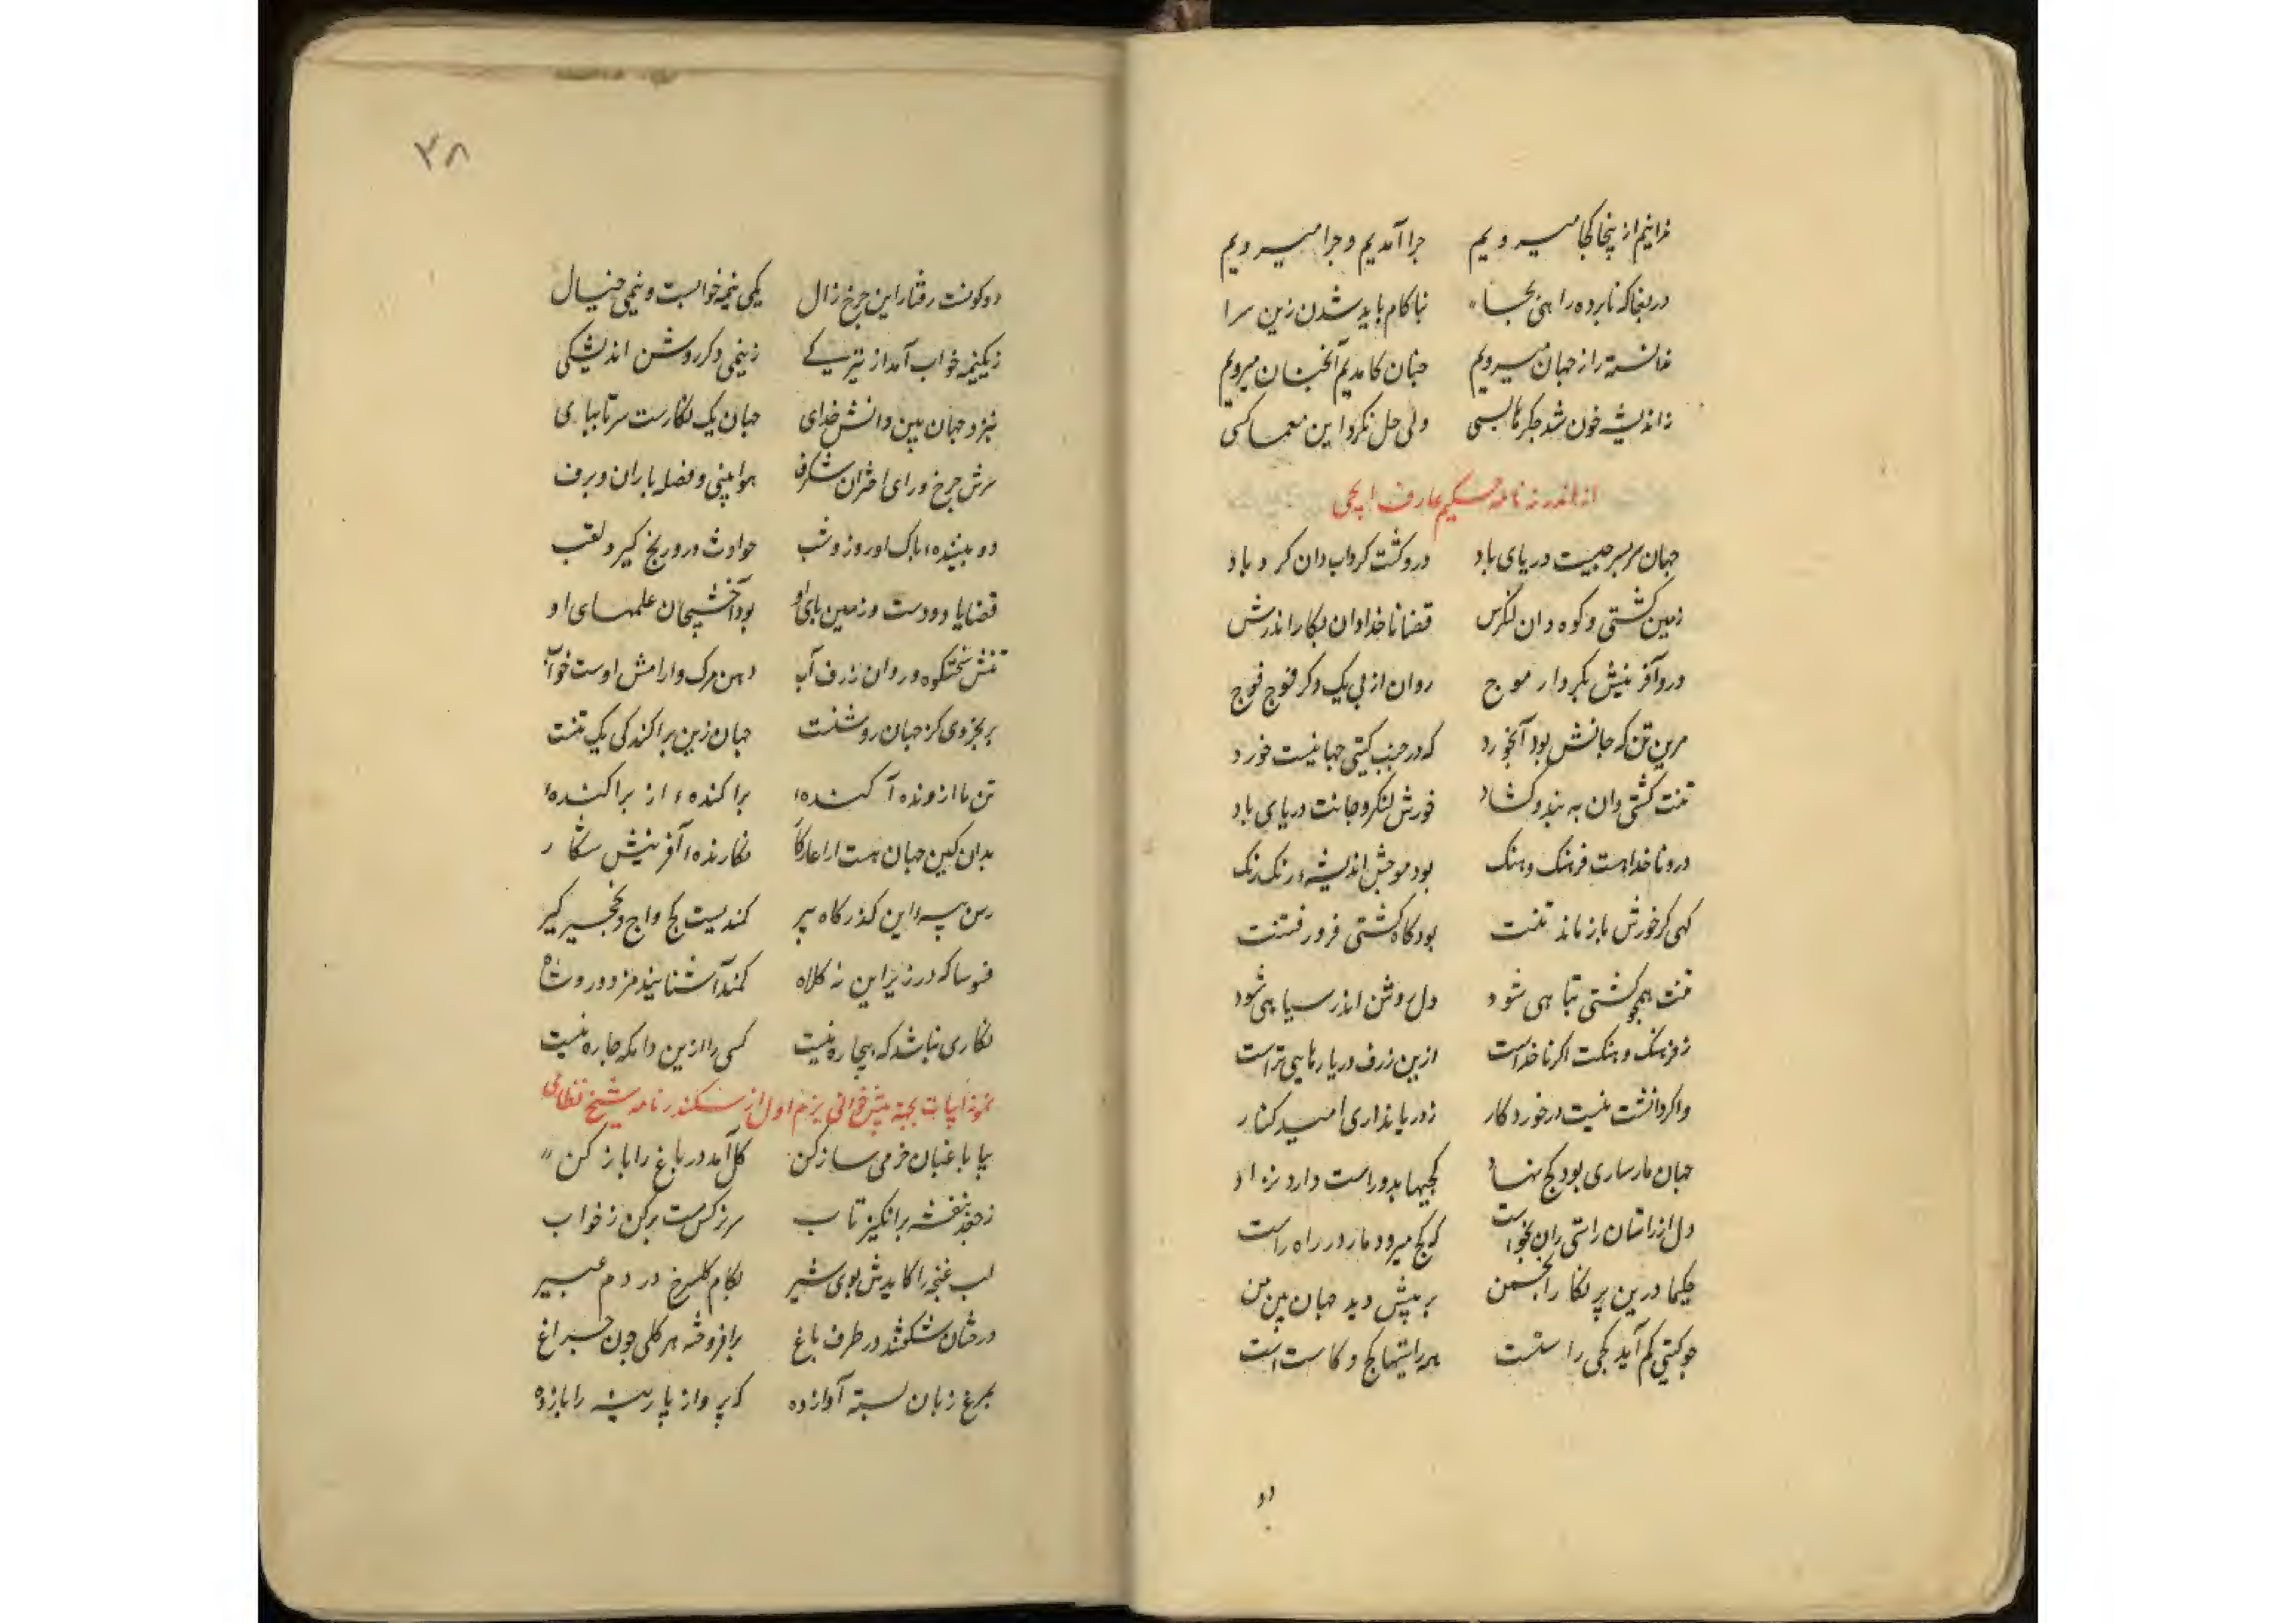 ندانیم از ینجا کجا میرویم چرا آمدیم و چرا میرویم
دریغا که نابرده راهی بجا ناکام باید شدن زین سرا
ندانسته راز جهان میرویم چنان کامدیم آنچنان میرویم
ز اندیشه خون شد جکرها بسی ولی حل نکرد این معما کسی
از اندرز نامه حکیم عارف ایجی
جهان سربسر چیست دریای باد درو کشت کرداب دان کرد باد
زمین کشتی و کوه دان لنکرش قضا ناخدا دان بکار اندرش
درو آفرینش بکردار موج روان از پی یک دکر فوج فوج
مرین تن که جانش بود آبخورد که در جنب کیتی جهانیست خورد
تنت کشتی دان به بند و کشاد خورش لنکر و جانت دریای باد
درو ناخداهست فرهنک و هنک بود موجش اندیشهٔ رنک رنک
کهی کز خورش باز ماند تنت بود کاه کشتی فرو رفتنت
تنت همچو کشتی تباهی شود دل روشن اندر سیاهی شود
ز فرهنک و هنکت اکر ناخداست ازین ژرف دریا رهایی تراست
و اکر دانشت نیست در خورد کار ز دریا نداری امید کنار
جهان مارساری بود کج نهاد کجیها بدو راست دارد نژاد
دل از راستان راستی زان نخواست که کج میرود مار در راه راست
حکیما درین پر نکار انجمن بر پیش دید جهان بین من
چو کیتی کم آید کجی راستست همه راستیها کج و کاست است
دو
۳۸
دو کونست رفتار این چرخ زال یکی نیمه خوابست و نیمی خیال
ز یکنیمه خواب آمد از تیرکی ز نیمی دکر روشن اندیشکی
بنزد جهان بین دانش خدای جهان یک نکارست سر تا بپای
سرش چرخ و رای اختران شکرف هوا بینی و فضله باران و برف
دو بینندهٔ پاک او روز و شب حوادث درو رنج کیرد لقب
قضایا دو دست و زمین پای او بود آخشیجان علمهای او
تنش سختکوه و روان ژرف آب دهن مرک و ارامش اوست خواب
بر بخردی کز جهان روشنست جهان زین پراکندکی یک تنست
تن ما ازو نده آکندهٔ پراکندهٔ از پراکندهٔ
بدان کین جهان هست اراعارکا نکارندهٔ آفرینش شکار
رسن این کذرکاه پیر کمندیست کج واج و نخجیر کیر
فسوسا که در زیر این نه کلاه کمند آشنایند مزدور و شاه
نکاری نباشد که بیچاره نیست کسی را ازین دامکه چاره نیست
نمونه ابیات بجهة پیش خوانی بزم اول از سکندر نامه شیخ نظامی
بیا باغبان خرمی ساز کن کل آمد در باغ را باز کن
ز جعد بنفشه برانکیز تاب سر نرکس مست برکن ز خواب
لب غنچه را کایدش بوی شیر بکام کلسرخ در دم عبیر
درختان شکفتند در طرف باغ برافروخته هر کلی چون چراغ
بمرغ زبان بسته آواز ده که پرواز پارینه را باز ده